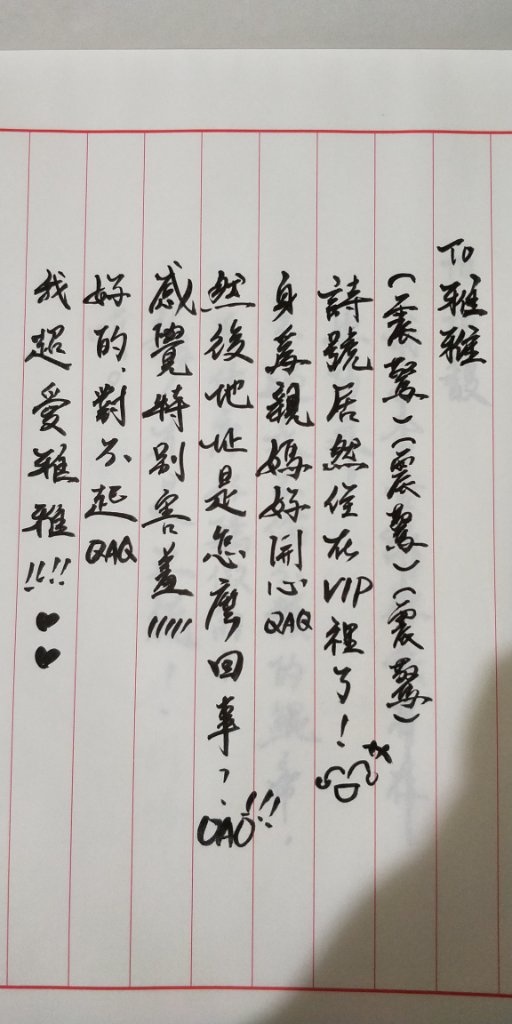 To 雅雅
(震驚)(震驚)(震驚)
詩號居然住在VIP裡了!
身為親媽好開心QAQ
然後地址是怎麼回事?!! OAO
感覺特別害羞/////
好的,對不起QAQ
我超愛雅雅!!!! ♥♥